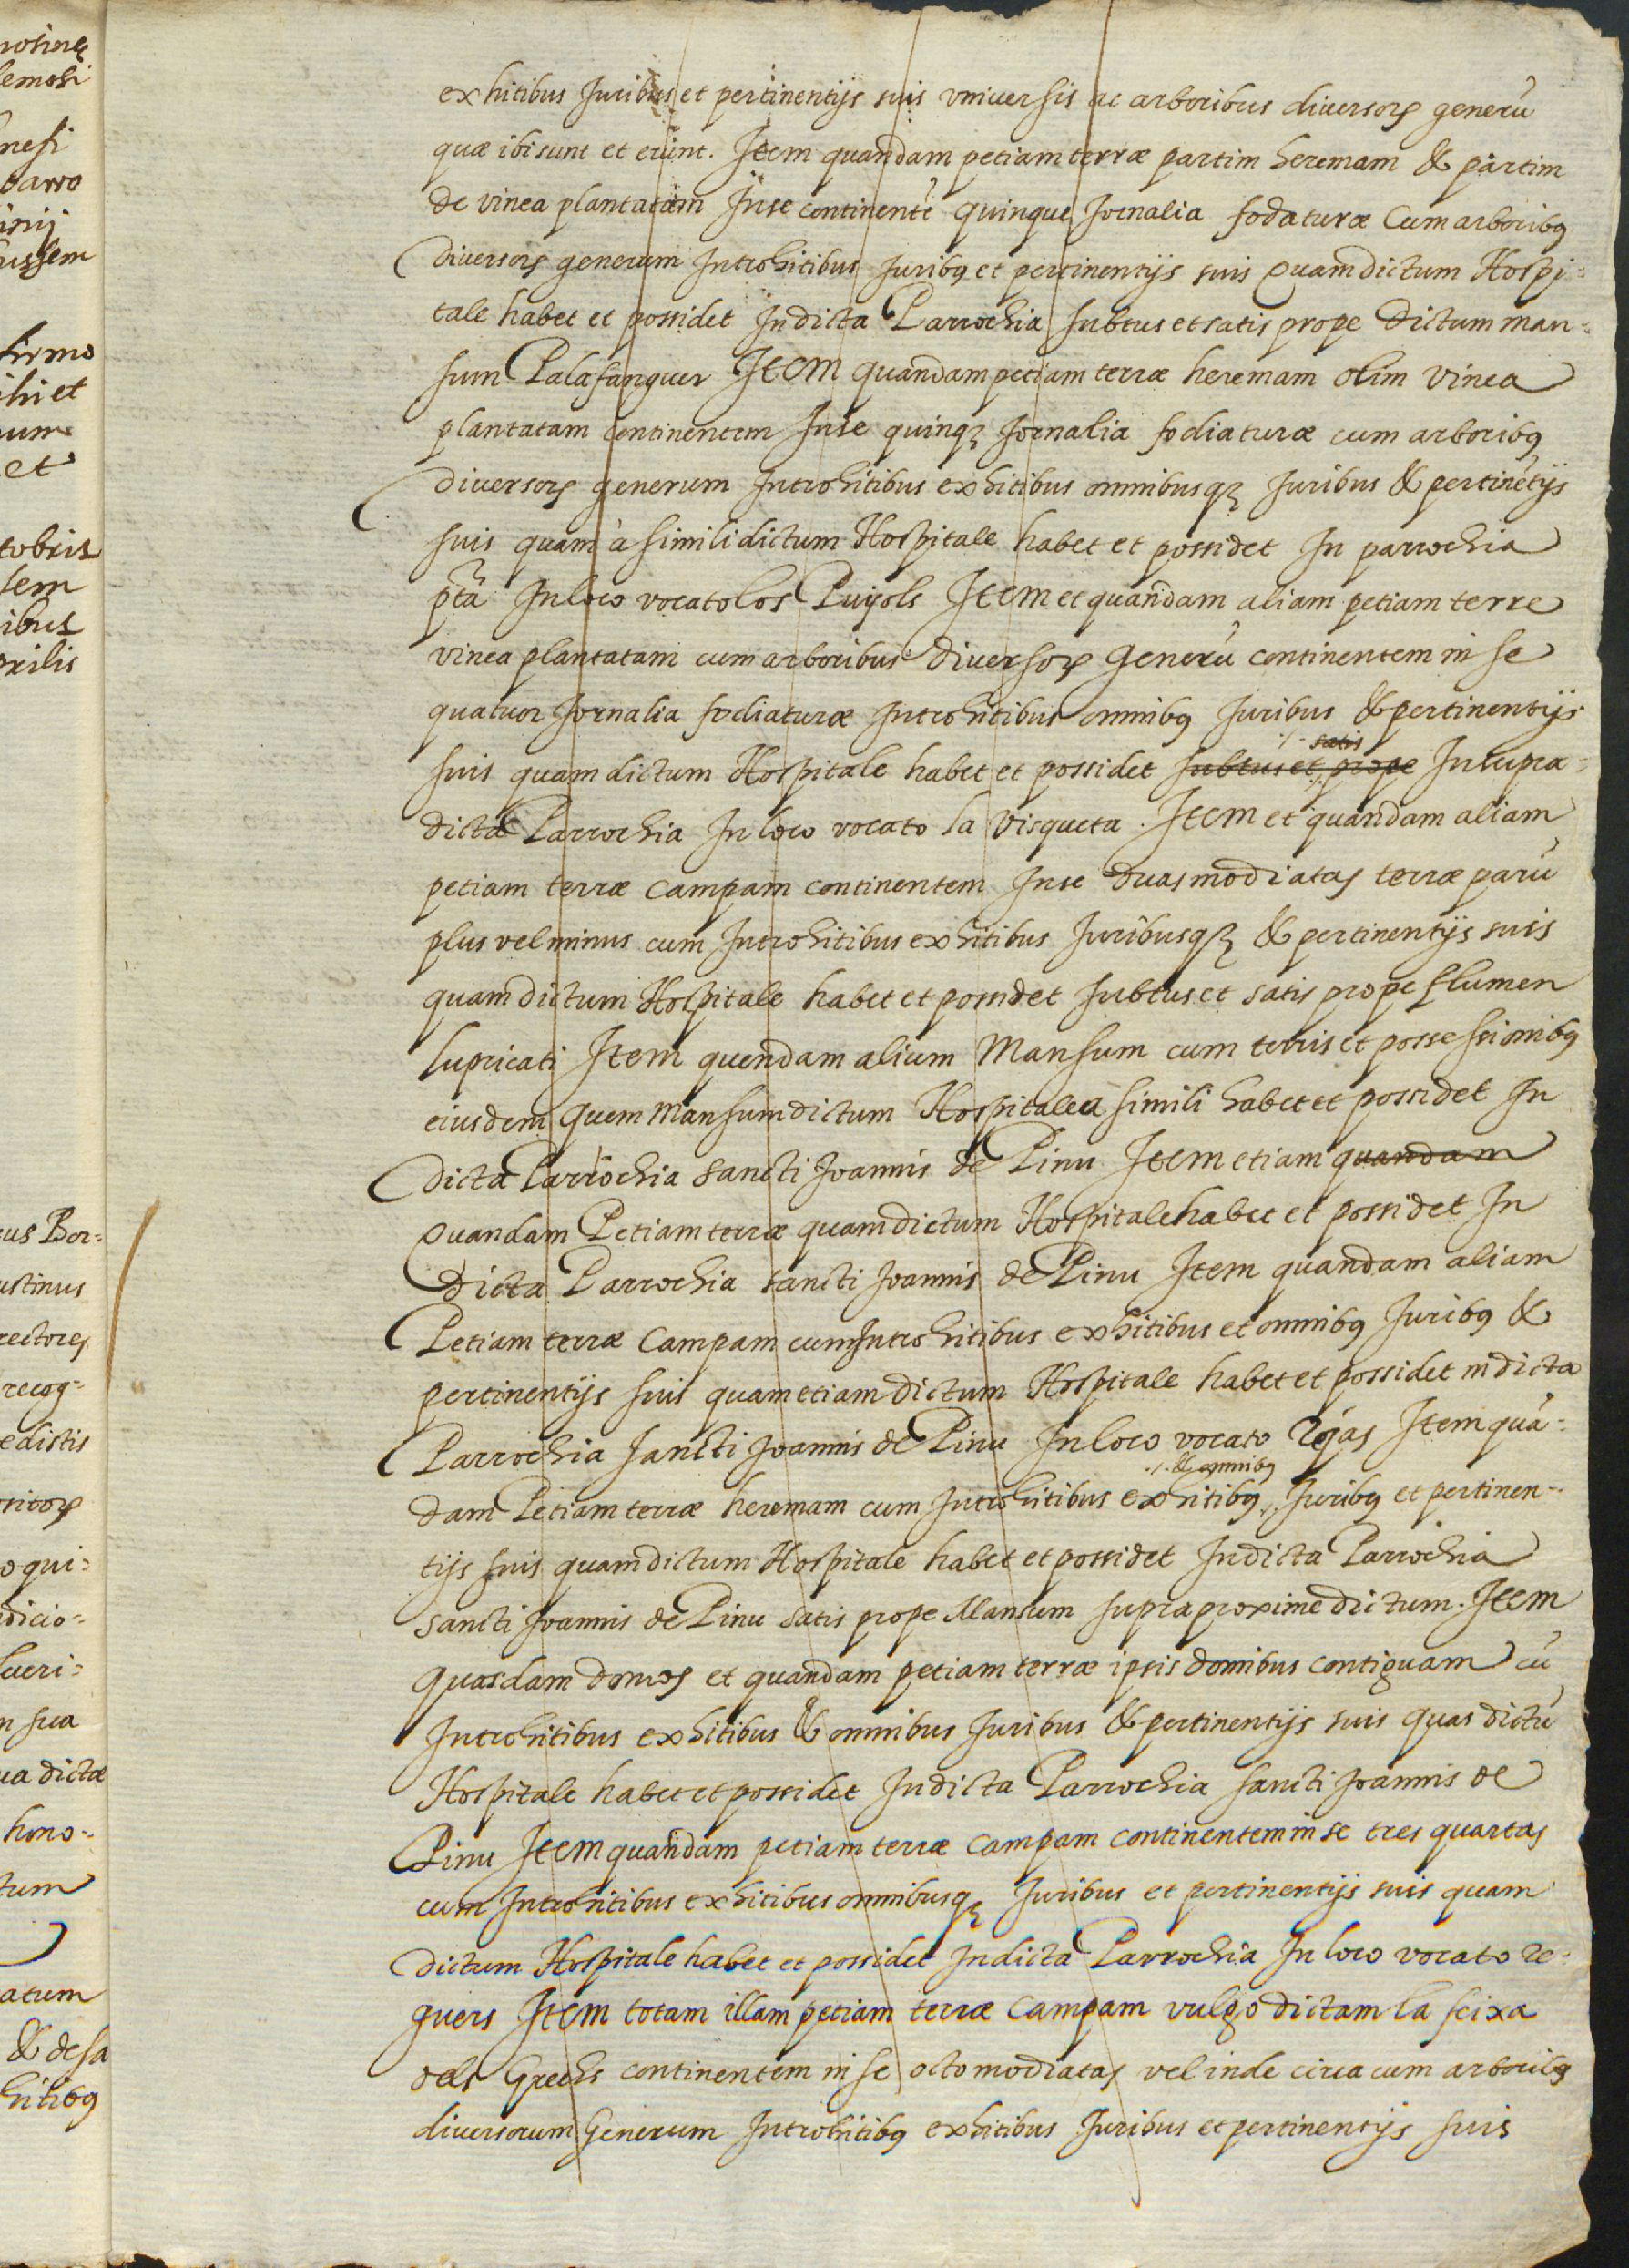 exhitibus Juribus et pertinentijs suis vniuersis ac arboribus diuersoꝝ generũ
quæ ibi sunt et erunt. Item quandam petiam terræ partim heremam & partim
de vinea plantatam Inse continentẽ quinque Jornalia fodaturæ Cum arboribꝰ
diuersoꝝ generum Introhitibus Juribꝰ et pertinentijs suis Quam dictum Hospi-
tale habet et possidet In dicta Parrochia subtus et satis prope Dictum man-
sum Palafanguer Item quandam petiam terræ heremam olim vinea
plantatam continentem Inse quinqꝫ Jornalia fodiaturæ cum arboribꝰ
diuersoꝝ generum Introhitibus exhitibus omnibusqꝫ Juribus & pertinẽtijs
suis quam à simili dictum Hospitale habet et possidet In parrochia
p̃ta In loco vocato los Puijols Item et quandam aliam petiam terre
vinea plantatam cum arboribus diuersoꝝ generũ continentem in se
quatuor Jornalia fodiaturæ Introhitibus omnibꝰ Juribus & pertinentijs
suis quam dictum Hospitale habet et possidet subtus et satis prope In supra-
dicta Parrochia In loco vocato la Visqueta. Item et quandam aliam
petiam terræ campam continentem Inse duas modiatas terræ parũ
plus vel minus cum Introhitibus exhitibus Juribusqꝫ & pertinentijs suis
quam dictum Hospitale habet et possidet subtus et satis prope flumen
lupricati Item quendam alium Mansum cum terris et possessionibꝰ
eiusdem quem Mansum dictum Hospitale a simili habet et possidet In
dicta Parrochia Sancti Joannis de Pinu Item etiam quandam
Quandam Petiam terræ quam dictum Hospitale habet et possidet In
dicta Parrochia sancti Joannis de Pinu Item quandam aliam
Petiam terræ Campam cum Introhitibus exhitibus et omnibꝰ Juribꝰ &
pertinentijs suis quam etiam dictum Hospitale habet et possidet in dicta
Parrochia Sancti Joannis de Pinu In loco vocato Item quã-
dam Petiam terræ heremam cum Introhitibus exhitibꝰ ./. & omnibꝰ Juribꝰ et pertinen-
tijs suis quam dictum Hospitale habet et possidet In dicta Parrochia
Sancti Joannis de Pinu satis prope Mansum supra proxime dictum. Item
quasdam domos et quandam petiam terræ ipsis domibus contiguam cũ
Introhitibus exhitibus & omnibus Juribus & pertinentijs suis quas dictũ
Hospitale habet et possidet In dicta Parrochia Sancti Joannis de
Pinu Item quandam petiam terræ campam continentem in se tres quartas
cum Introhitibus exhitibus omnibusqꝫ Juribus et pertinentijs suis quam
dictum Hospitale habet et possidet In dicta Parrochia In loco vocato re-
guers Item totam illam petiam terræ campam vulgo dictam la feixa
dels Grechs continentem in se octo modiatas vel inde circa cum arboribꝰ
diuersorum Generum Introhitibꝰ exhitibus Juribus et pertinentijs suis